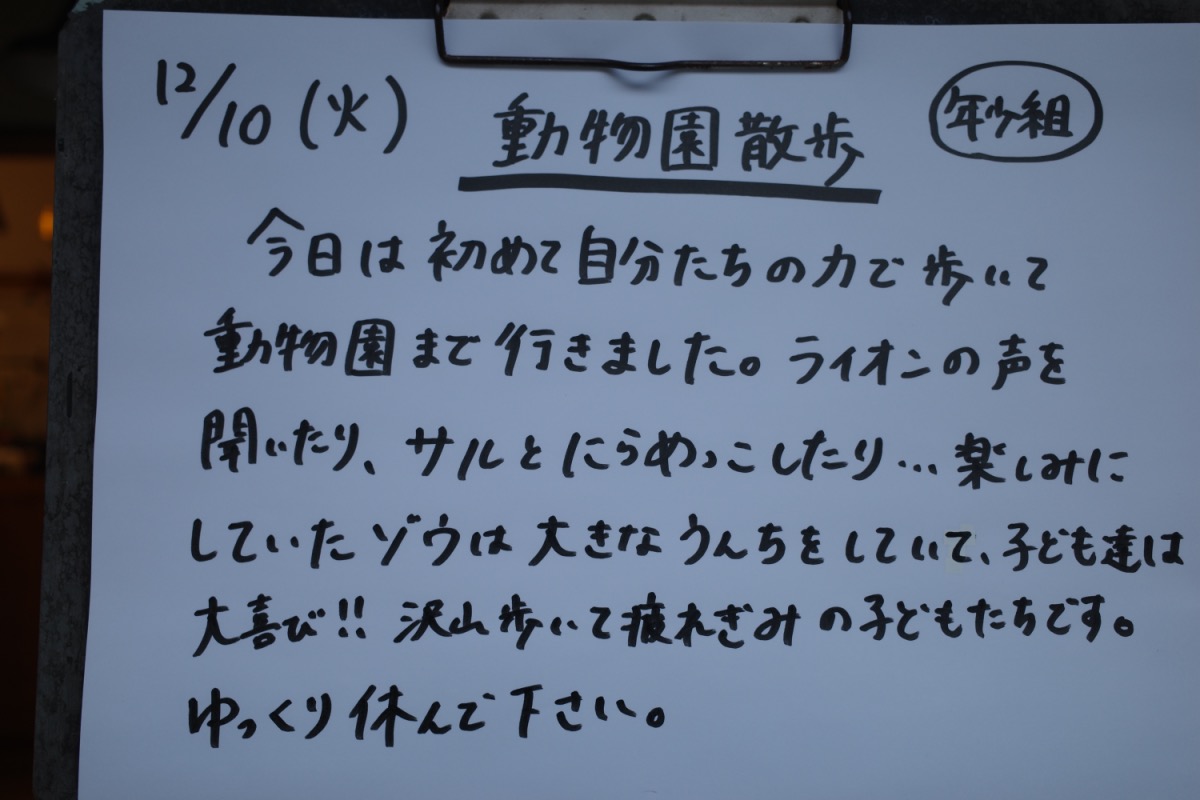 12/10(火) 動物園散歩 年少組
今日は初めて自分たちの力で歩いて
動物園まで行きました。ライオンの声を
聞いたり、サルとにらめっこしたり…楽しみに
していたゾウは大きなうんちをしていて、子ども達は
大喜び!!沢山歩いて疲れぎみの子どもたちです。
ゆっくり休んで下さい。